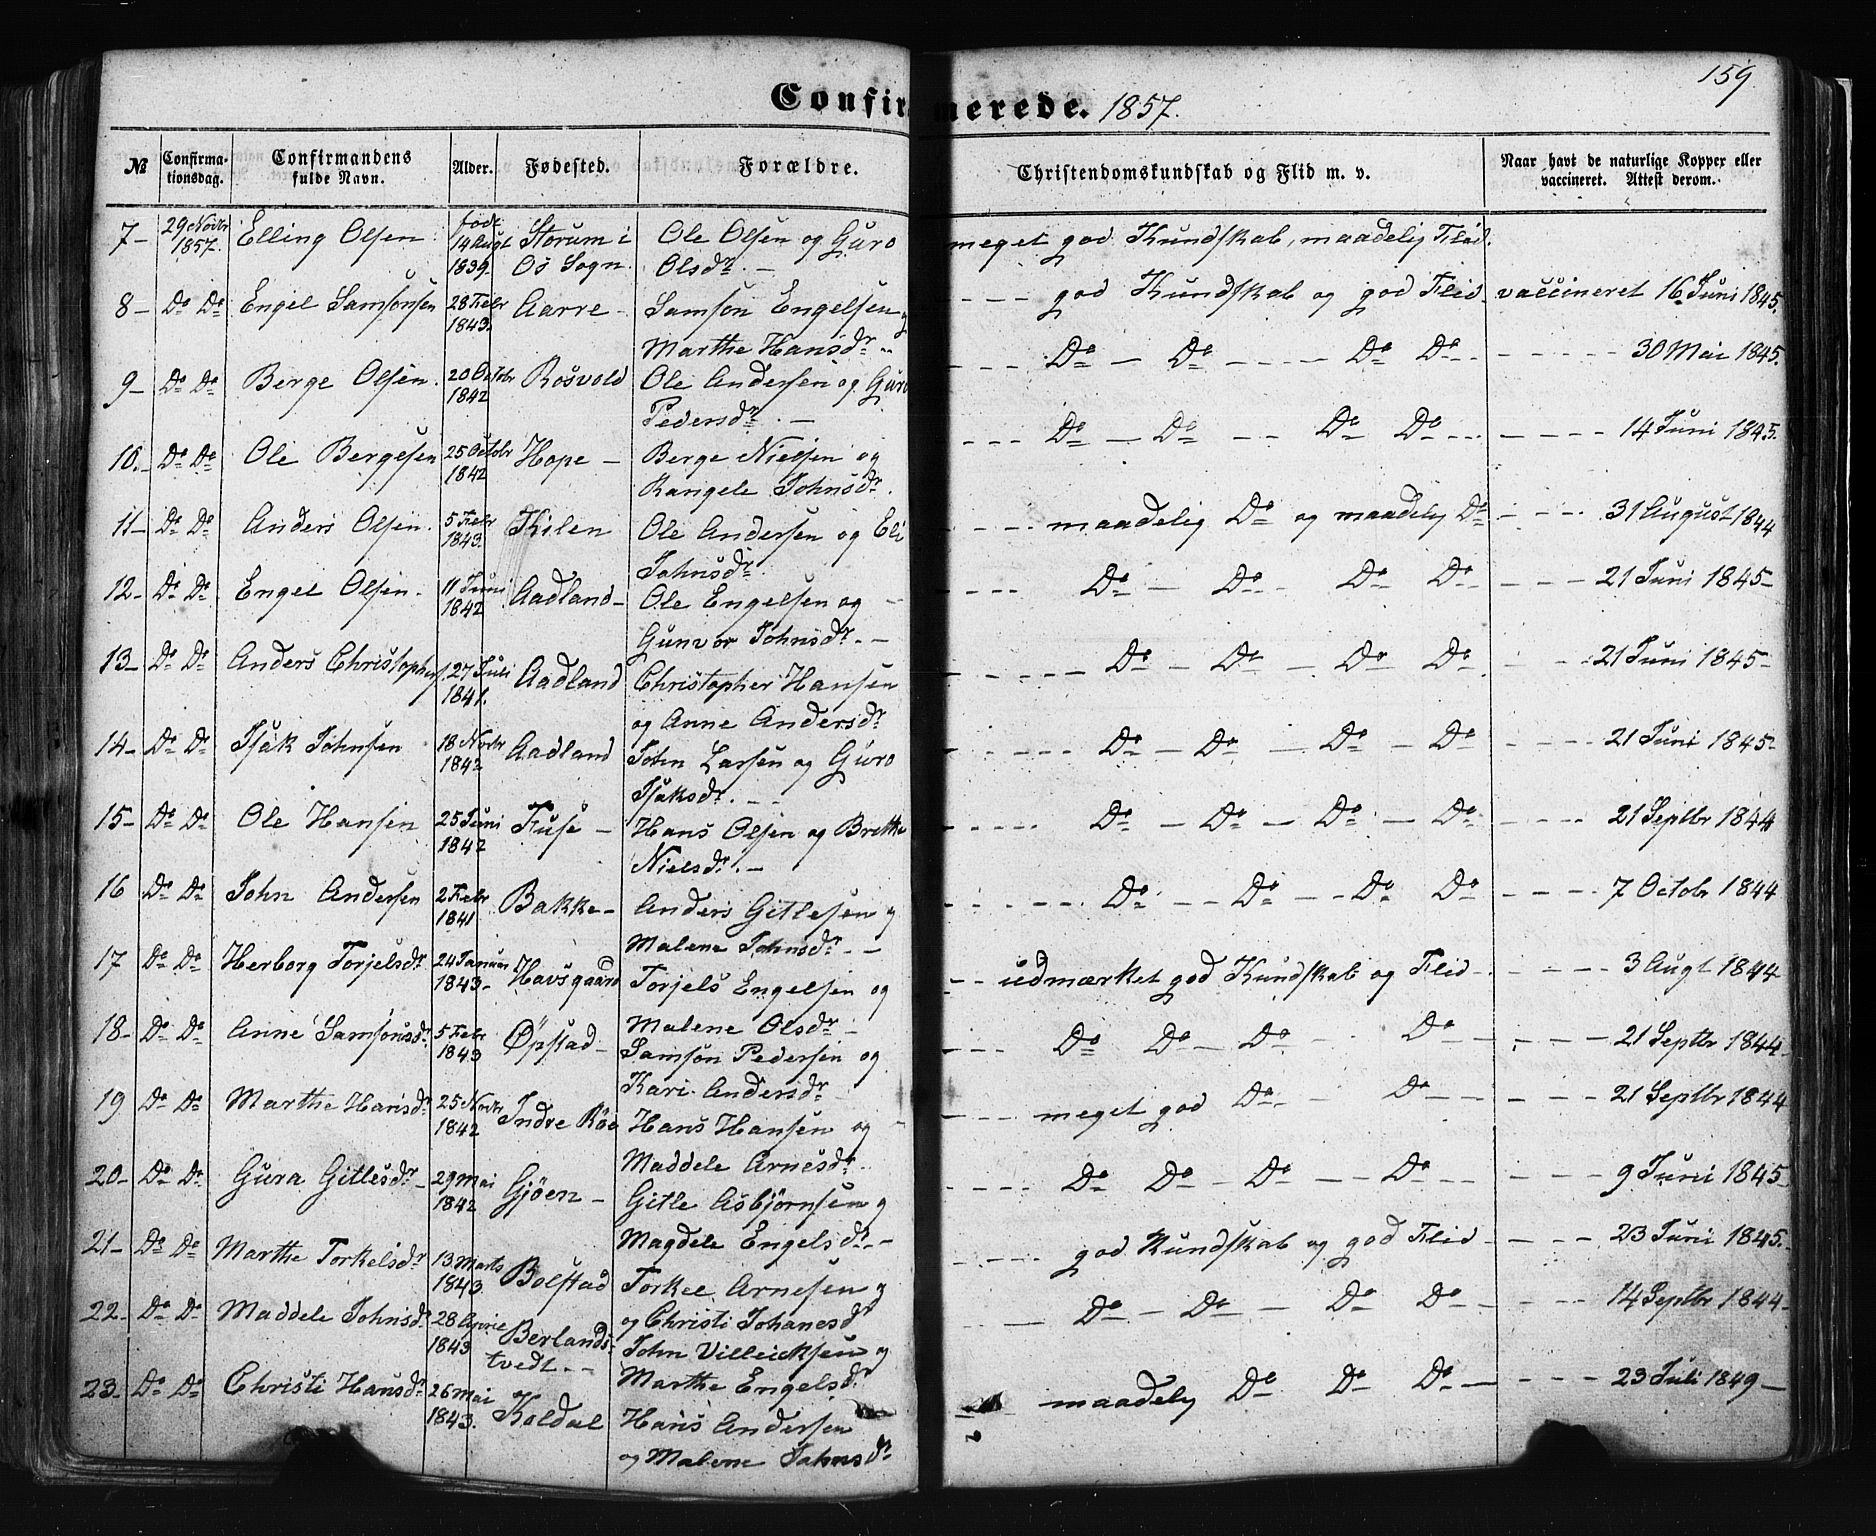 159
Confirmerede. 1857.
№ Confirmationsdag. Confirmandens fulde Navn. Alder. Fødested. Forældre. Christendomskundskab og Flid m. v. Naar havt de naturlige Kopper eller vaccineret. Attest derom.
7- 29 Novbr 1857. Elling Olsen født 14 Augt 1839. Storum i Os Sogn. Ole Olsen og Guro Olsdr. - meget god Kundskab, maadelig Flid.
8- Do Do Engel Samsonsen 28 Febr 1843. Aarre - Samson Engelsen og Marthe Hansdr - - - god Kundskab og god Flid vaccineret 16 Juni 1845.
9- Do Do Berge Olsen. 20 Octbr 1842 Rosvold Ole Andersen og Guro Pedersdr. - - - - Do - Do - - - - Do Do - - - - - 30 Mai 1845.
10.- Do Do Ole Bergesen 25 Octobr 1842 Hope - Berge Nielsen og Rangele Johnsdr. - - - Do - Do - - Do Do - - - - - - 14 Juni 1845.
11- Do Do Anders Olsen. 5 Febr 1843. Kilen Ole Andersen og Eli Johnsdr. - - - maadelig Do og maadely Do - - - - 31 August 1844
12- Do Do Engel Olsen. 11 Juni 1842 Aadland- Ole Engelsen og Gunvor Johnsdr. - - - - - Do - Do - Do Do - - - 21 Juni 1845-
13- Do Do Anders Christophers. 27 Juli 1841. Aadland Christopher Hansen og Anne Andersdr - - - - - Do - Do - Do - Do - - - 21 Juni 1845-
14- Do Do Isak Johnsen 18 Novbr 1842 Aadland John Larsen og Guro Isaksdr. - - - - - - Do - Do - Do - Do - - - - 21 Juni 1845-
15- Do Do Ole Hansen 25 Juni 1842 Fuse - Hans Olsen og Brethe Nielsdr. - - - - - Do - Do - Do - Do - - - - - 21 Septbr 1844
16 Do Do John Andersen 2 Febr 1841 Bakke- Anders Gitlesen og Malene Johnsdr. - - - - - - Do - Do - Do Do - - - - 7 Octobr 1844
17 Do Do Herborg Torjelsdr 24 Januar 1843- Havsgaard Torjels Engelsen og Malene Olsdr - - - udmærket god Kundskab og Flid - - - - - 3 Augt 1844-
18- Do Do Anne Samsonsdr. 5 Febr 1843 Øpstad- Samson Pedersen og Kari Andersdr - - - - Do Do - Do - Do - - - - - 21 Septbr 1844-
19 Do Do Marthe Hansdr 25 Novbr 1842 Indre Røe Hans Hansen og Maddele Arnesdr. - - - meget god Do - Do - - - - - 21 Septbr 1844
20- Do Do Gura Gitlesdr - 29 Mai 1842 Gjøen - Gitle Asbjørnsen og Magdele Engelsdr. - - - - - Do Do - Do - Do - - - - - 9 Juni 1845-
21- Do Do Marthe Torkelsdr 13 Marts 1843. Bolstad Torkel Arnesen og og Christi Johanesd - - - - god Kundskab og god Flid - - - - 23 Juni 1845.-
22- Do Do Maddele Johnsdr. 28 April 1843 Berlandstvedt. - John Villeicksen og Marthe Engelsdr - - - Do - Do - Do Do - - - - 14 Septbr 1844-
23- Do Do Christi Hansdr 26 Mai 1843. Koldal Hans Andersen og Malene Johnsdr maadely Do Do Do - - - - 23 Juli 1849 -